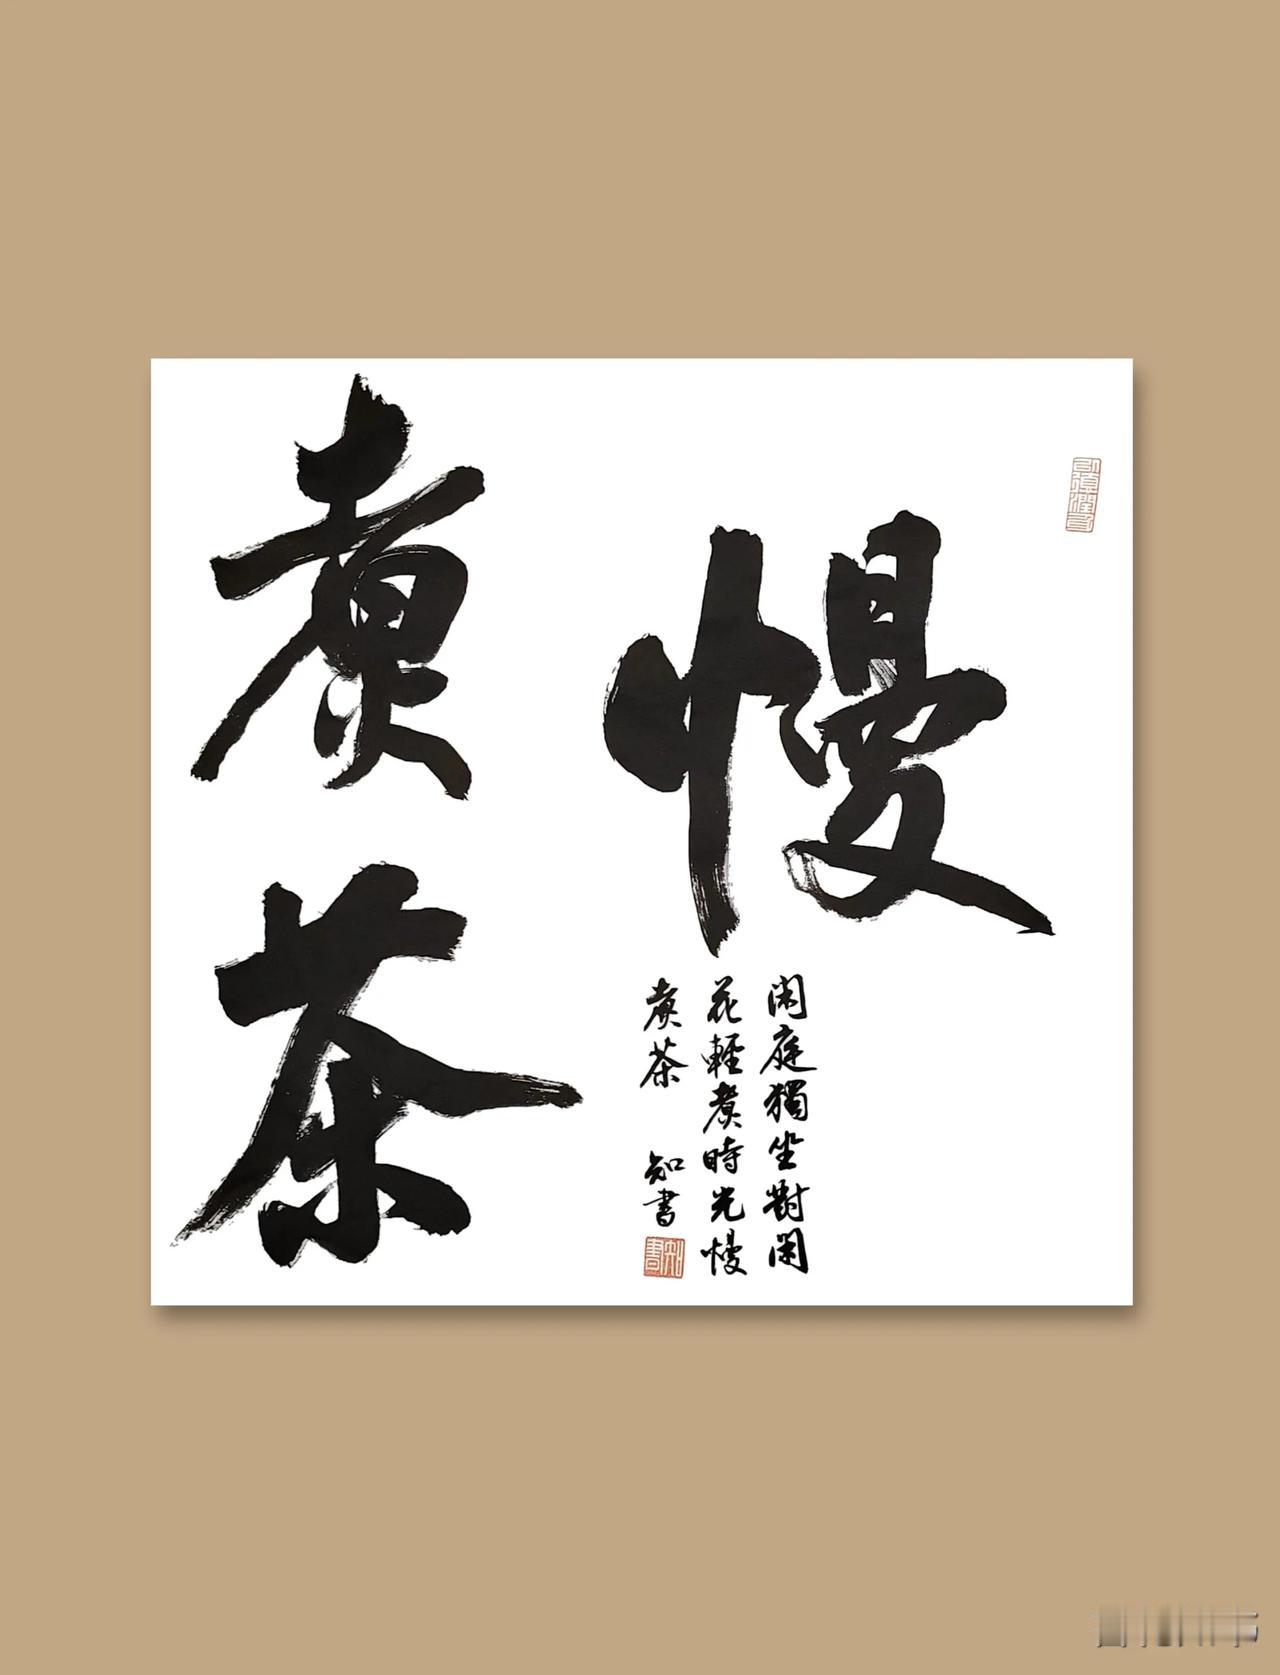 慢
煮茶
閑庭獨坐對閑
花輕煮時光慢
煮茶
知書
知書